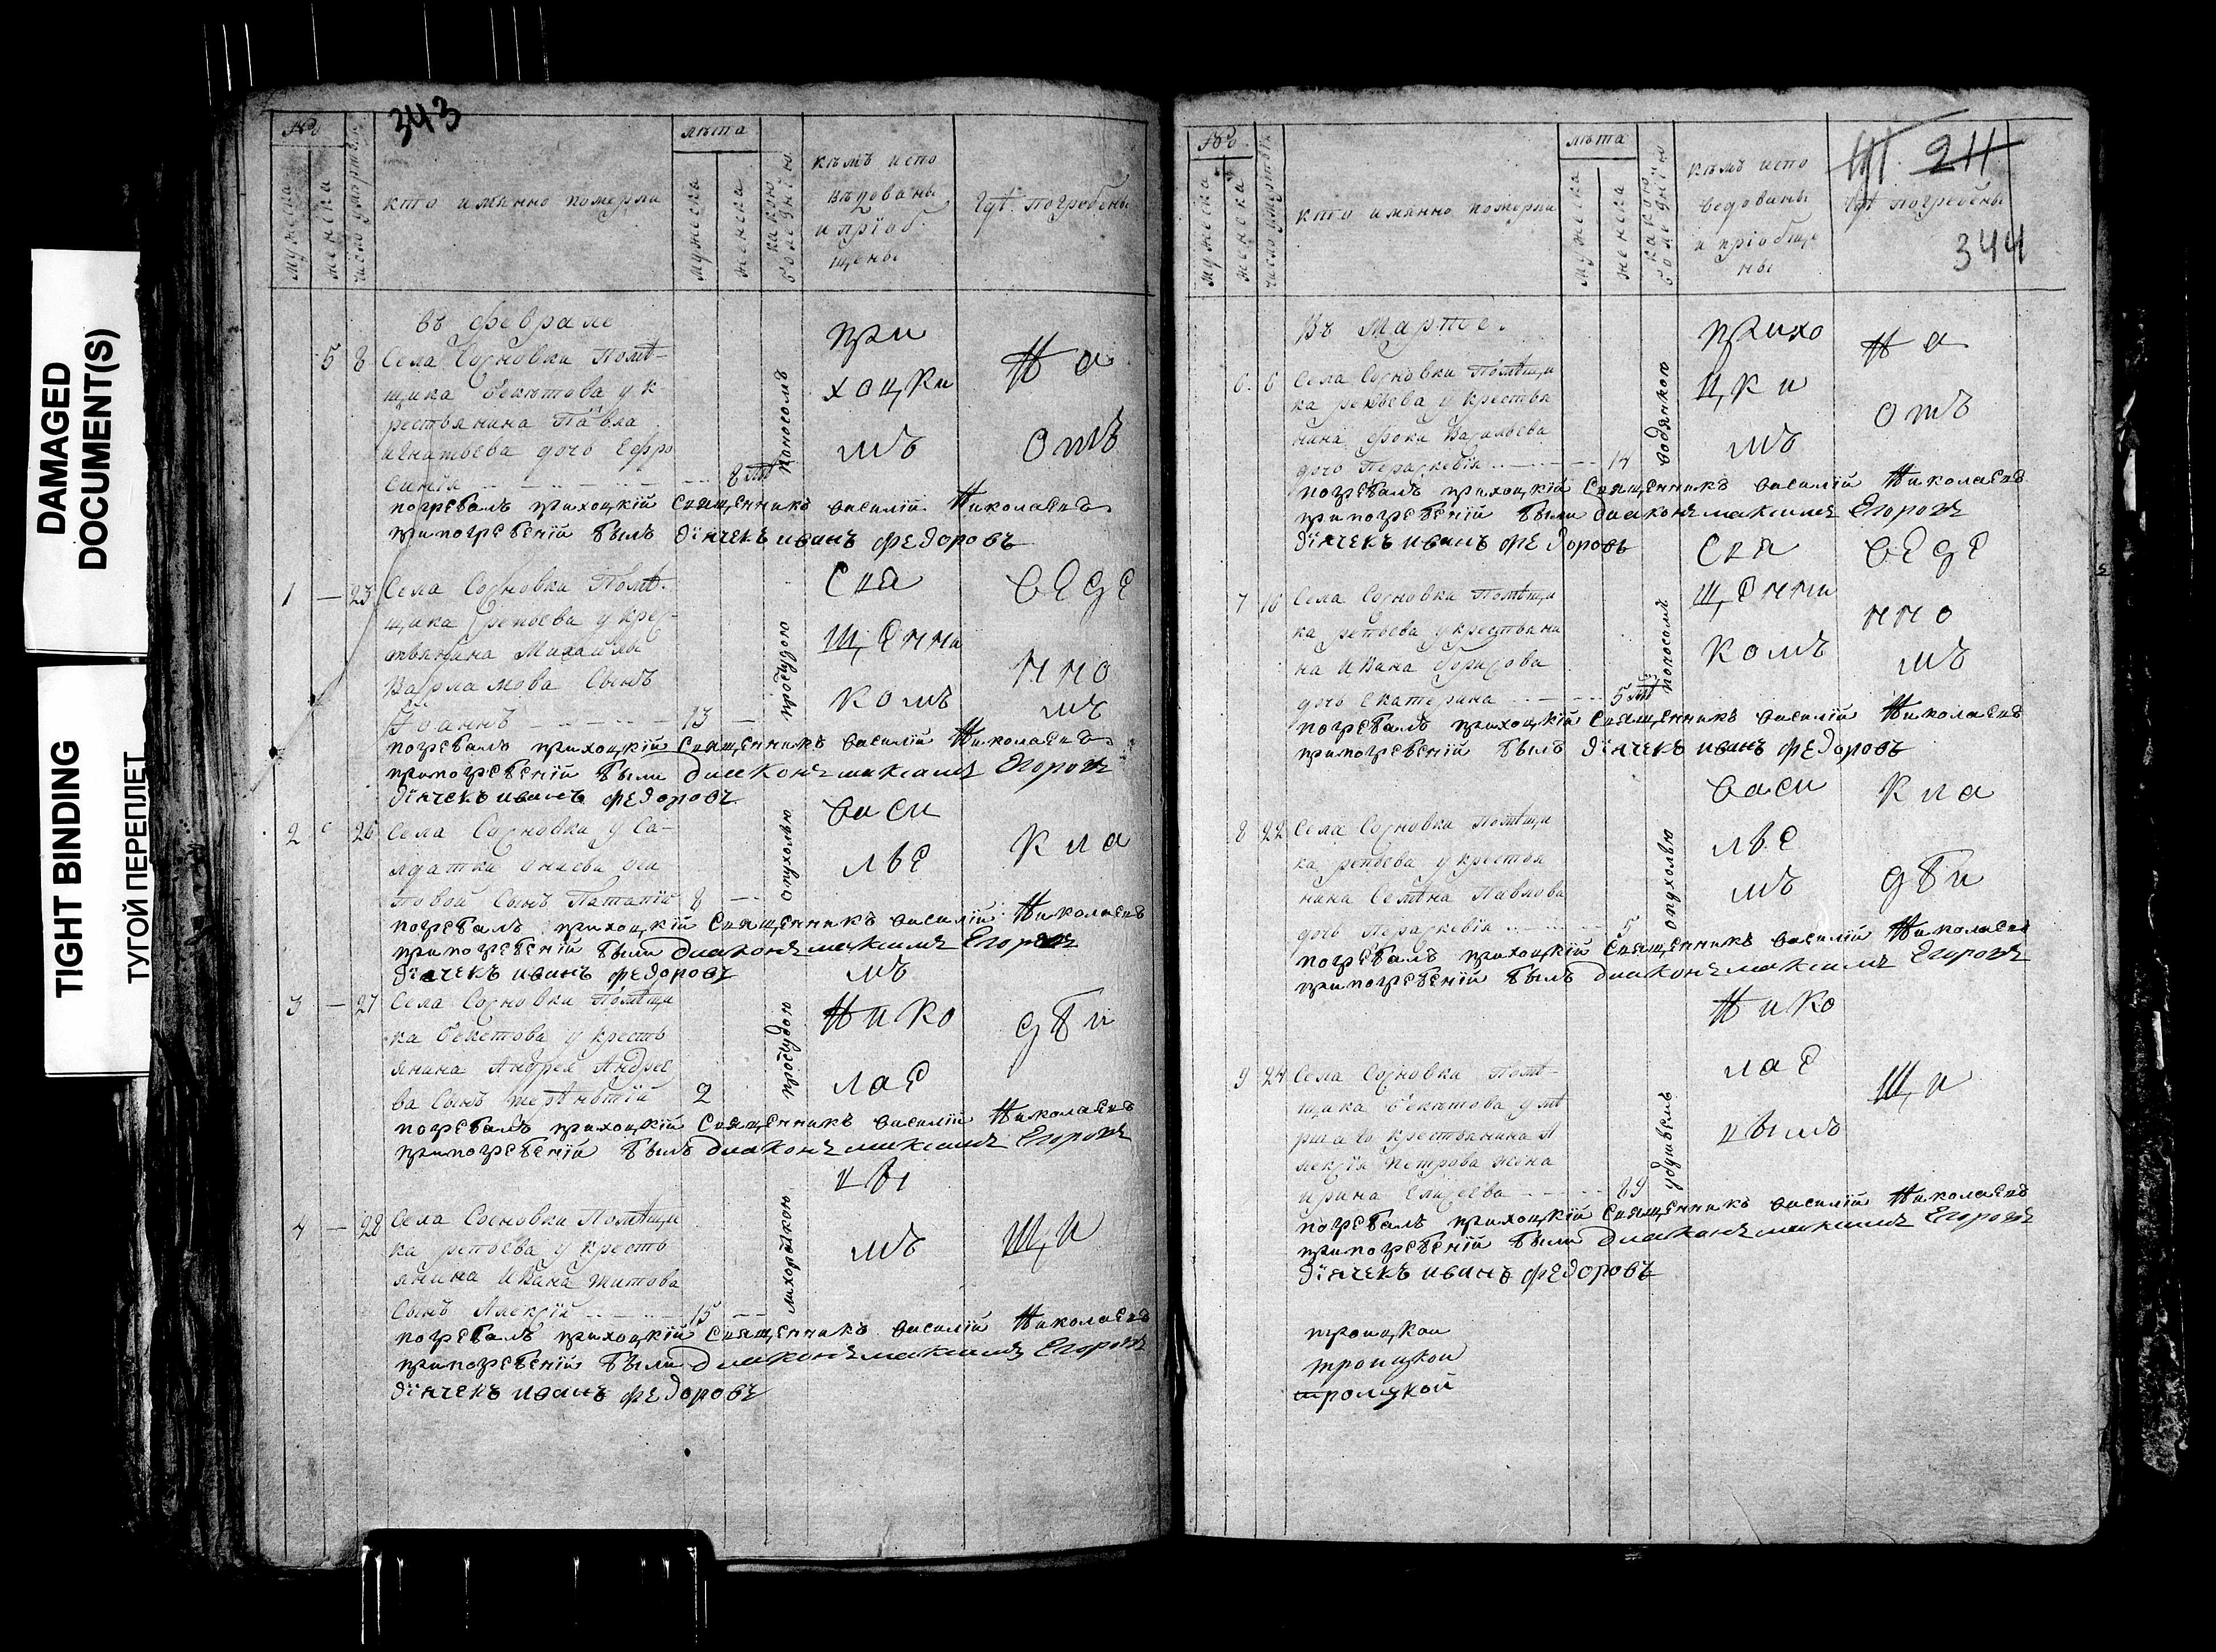 DAMAGED
DOCUMENT(S)
TIGHT BINDING
ТУГОЙ ПЕРЕПЛЕТ
343
№
мужеска
женска
число умертвия
кто имянно померли
лѣта
мужеска
женска
какою болезнію
кѣмъ испо
вѣдованы
и пріоб
щены
гдѣ погребены
въ феврале
5 8 Села Сосновки Помѣ-
щика Бекѣтова у к
рестьянина Павла
Игнатьева дочь Ефро
синія 8 мѣ
поносомъ
погребалъ прихоцкій священникъ василій Николаевъ
при погребеніи былъ дьячекъ иванъ федоровъ
1 — 23 Села Сосновки Помѣ-
щика Репьева у крес-
тьянина Михайлы
Варламова Сынъ
Иоаннъ 13
простудою
погребалъ прихоцкій священникъ василій Николаевъ
при погребеніи были диаконъ максимъ Егоровъ
дьячекъ иванъ федоровъ
2 26 Села Сосновки у Са-
лдатки
Сынъ Потапій 8
опухолью
погребалъ прихоцкій священникъ василій Николаевъ
при погребеніи были диаконъ максимъ Егоровъ
дьячекъ иванъ федоровъ
3 — 27 Села Сосновки Помѣщи
ка Бекетова у кресть
янина Андрея Андрее
ва Сынъ терѣньтій 2
простудою
погребалъ прихоцкій священникъ василій Николаевъ
при погребеніи былъ диаконъ максимъ Егоровъ
4 — 28 Села Сосновки Помѣщи
ка репьева у кресть
янина Ивана титова
Сынъ Алексій 15
лихораткою
погребалъ прихоцкій священникъ василій Николаевъ
при погребеніи были диаконъ максимъ Егоровъ
дьячекъ иванъ федоровъ
при
хоцки
мъ
свя
щенни
комъ
васи
лье
мъ
Нико
лае
вы
мъ
На
отъ
веде
нно
мъ
кла
дби
щи
№
мужеска
женска
число умертвия
кто имянно померли
лѣта
мужеска
женска
какою болезнію
кѣмъ испо
ведованы
и пріобще
ны
гдѣ погребены
211
344
въ Мартѣ
6 6 Села Сосновки Помѣщи
ка репьева у крестья
нина Фоки Васильева
дочь Параскевія 14
водяною
погребалъ прихоцкій священникъ василій Николаевъ
при погребеніи были диаконъ максимъ Егоровъ
дьячекъ иванъ федоровъ
7 16 Села Сосновки Помѣщи
ка репьева у крестьяни
на Ивана борисова
дочь Екатерина 5 мѣ
поносомъ
погребалъ прихоцкій священникъ василій Николаевъ
при погребеніи былъ дьячекъ иванъ федоровъ
8 22 Села Сосновки Помѣщи
ка репьева у крестья
нина Семѣна Павлова
дочь Параскевія 5
опухолью
погребалъ прихоцкій священникъ василій Николаевъ
при погребеніи былъ диаконъ максимъ Егоровъ
9 24 Села Сосновки Помѣ-
щика Бекѣтова умѣ
ршаго крестьянина А
лексія Петрова жена
ирина Елисеева 69
удушьемъ
погребалъ прихоцкій священникъ василій Николаевъ
при погребеніи были диаконъ максимъ Егоровъ
дьячекъ иванъ федоровъ
прихо
цки
мъ
свя
щенни
комъ
васи
лье
мъ
Нико
лае
вымъ
На
отъ
веде
нно
мъ
кла
дби
щи
троицкои
троицкои
троицкой